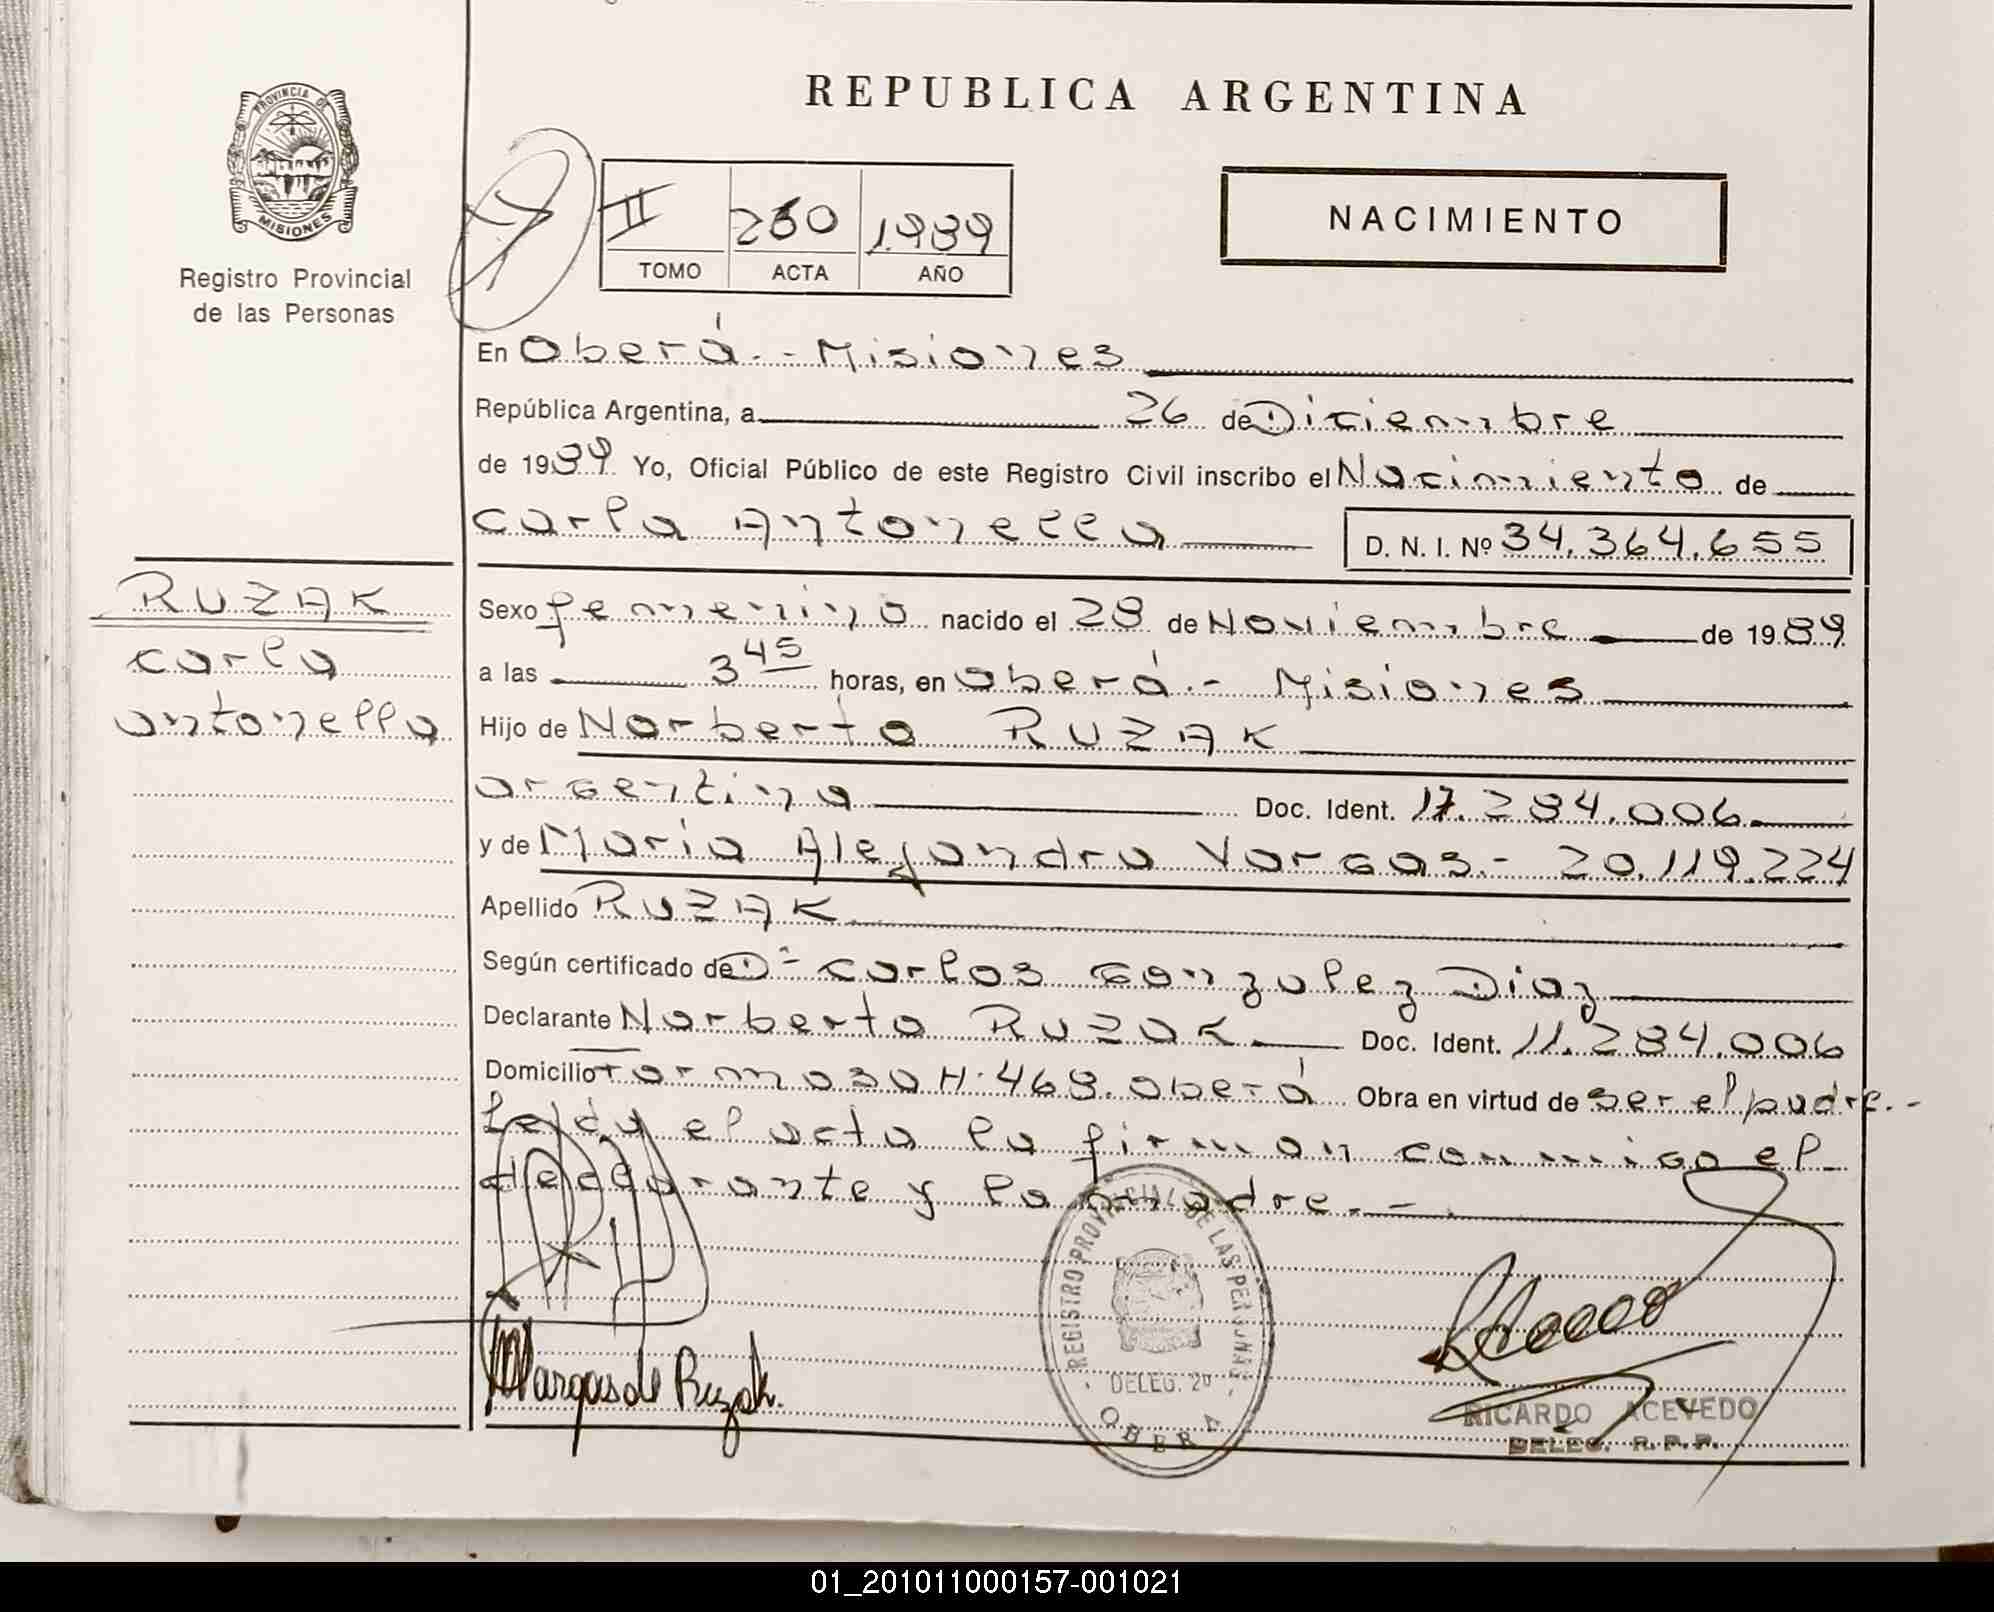 REPUBLICA ARGENTINA
PROVINCIA DE
MISIONES
Registro Provincial
de las Personas
II 260 1989
TOMO ACTA AÑO
NACIMIENTO
En Oberá.- Misiones
República Argentina, a 26 de Diciembre
de 1989 Yo, Oficial Público de este Registro Civil inscribo el Nacimiento de
Carla Antonella D. N. I. Nº 34.364.655
RUZAK
Carla
Antonella
Sexo femenino nacido el 28 de Noviembre de 1989
a las 3 45 horas, en Oberá.- Misiones
Hijo de Norberto RUZAK
argentina Doc. Ident. 17.284.006
y de Maria Alejandra Vargas.- 20.119.224
Apellido RUZAK
Según certificado de D- Carlos Gonzalez Diaz
Declarante Norberto RUZAK Doc. Ident. 11.284.006
Domicilio Formosa N. 468. Oberá Obra en virtud de ser el padre.-
Leída el acta la firman conmigo el
declarante y la madre.-.
Vargas de Ruzak.
REGISTRO PROVINCIAL DE LAS PERSONAS
DELEG. 2ª
OBERA
RICARDO ACEVEDO
DELEG. R.P.P.
01_201011000157-001021